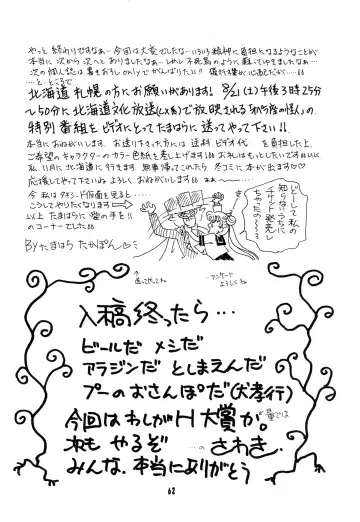 やっと終わりですなぁー今回は大変でしたなーいろいろ精神に負担になるようなことが
本当に次から次へとおりましたなぁ…しかし不死鳥のように蘇ってゆきましたなぁ…
次の個人誌は書きおろしonlyでがんばりたい!!
…ととうころで
北海道札幌の方にお願いがあります! 8/21(土)午後3時25分
〜50分に北海道文化放送(CX系)で放映される「オペラ座の怪人」の、
特別番組をビデオにとってたまはらに送って下さい!!
本当におねがいします、お送り下さった方には送料、ビデオ代を負担した上、
ご希望のキャラクターのカラー色紙を差し上げます
私、11月に北海道に行きます。無事帰ってこれたら冬コミに本が出ます♡
応援してやって下さいね よろしくおねがいします
今 私はタキシード仮面を見ると…
こうしてやりたくなります⇨
以上たまはらに愛の手を!!
のコーナーでした
Byたまはらたかぽん
どーして私の
知らないうちに
チケット発売し
ちゃったの〜
送ってやってね
アンケート
よろしくね
入稿終ったら…
ビールだ メシだ
アラジンだ としまえんだ
プーのおさんぽだ(犬孝行)
今回はわしがH大賞か。
量では
次もやるぞ …の さわき
みんな、本当にありがとう
62